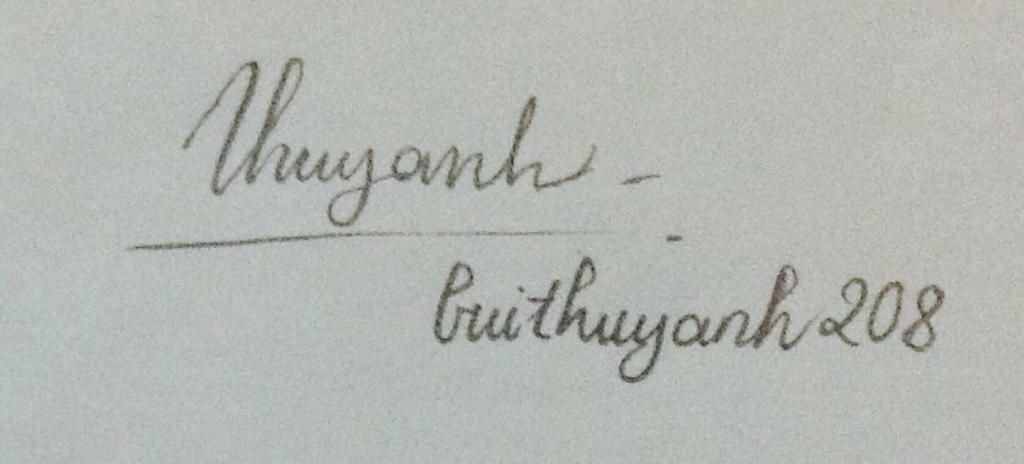 Thuyanh -
buithuyanh 208